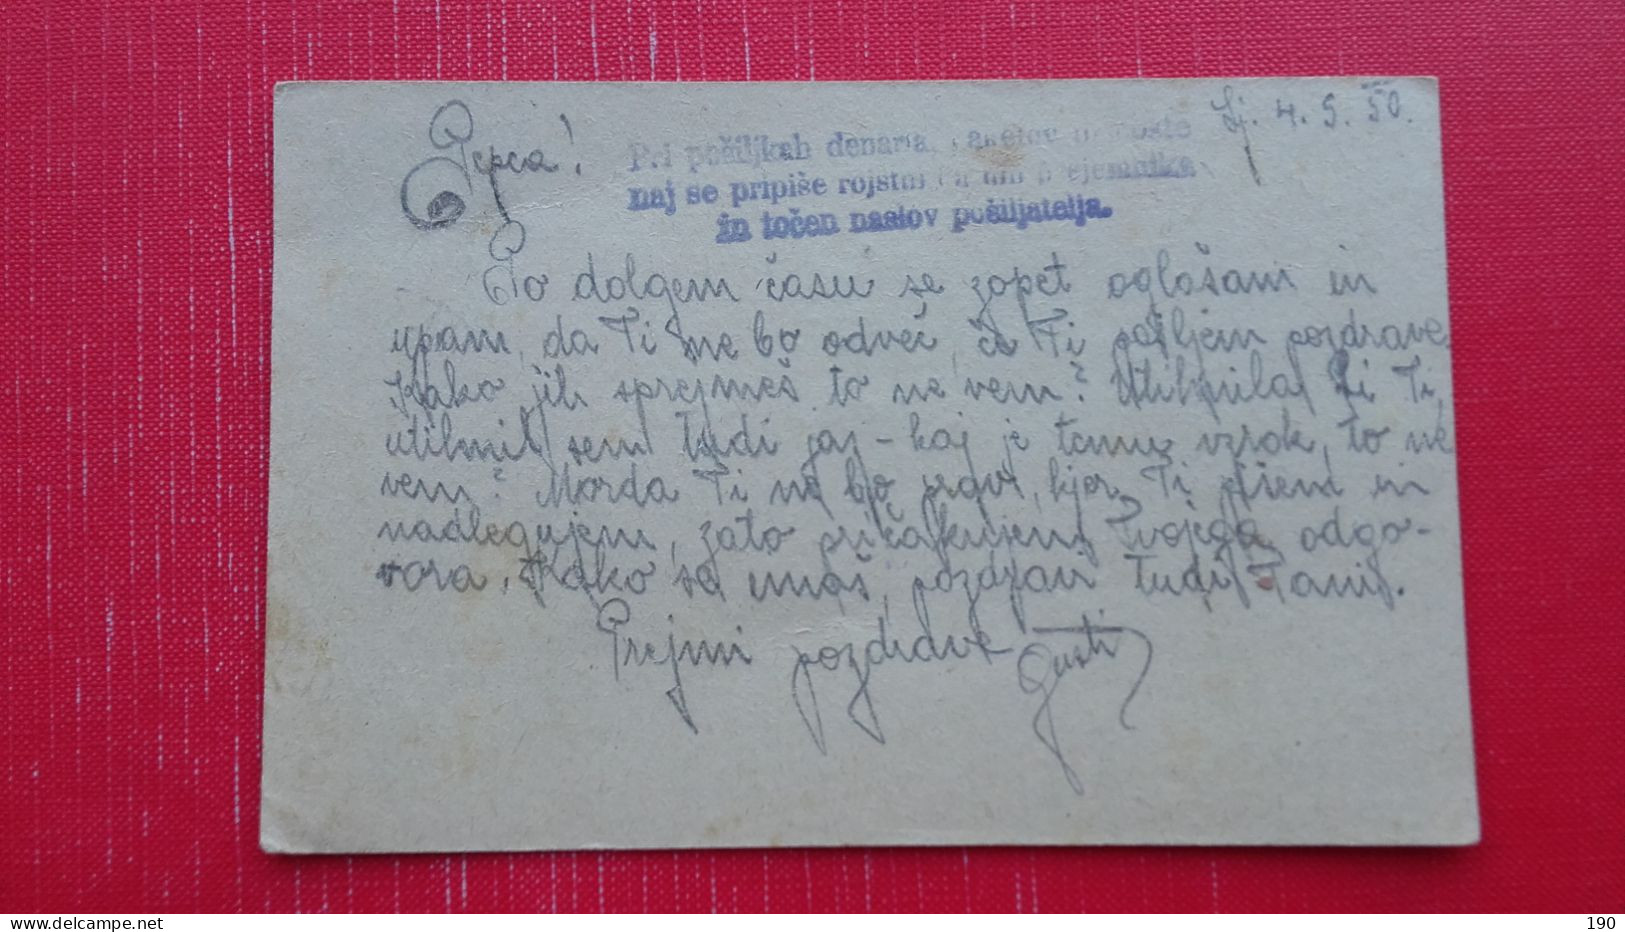 Lj. 4. 5. 50.
Pepca!
Pri pošiljkah denarja, paketov
naj se pripiše rojstni prejemnika
in točen naslov pošiljatelja.
Po dolgem času se zopet oglašam in
upam, da Ti ne bo odveč, če Ti pošljem pozdrave.
Kako jih sprejmeš to ne vem? Utihnila si Ti,
utihnil sem tudi jaz – kaj je temu vzrok, to ne
vem? Morda Ti ne bo prav, kjer Ti pišem in
nadlegujem, zato pričakujem Tvojega odgo-
vora. Kako se imaš, pozdravi tudi
Prejmi pozdrave Gusti
delcampe.net
190